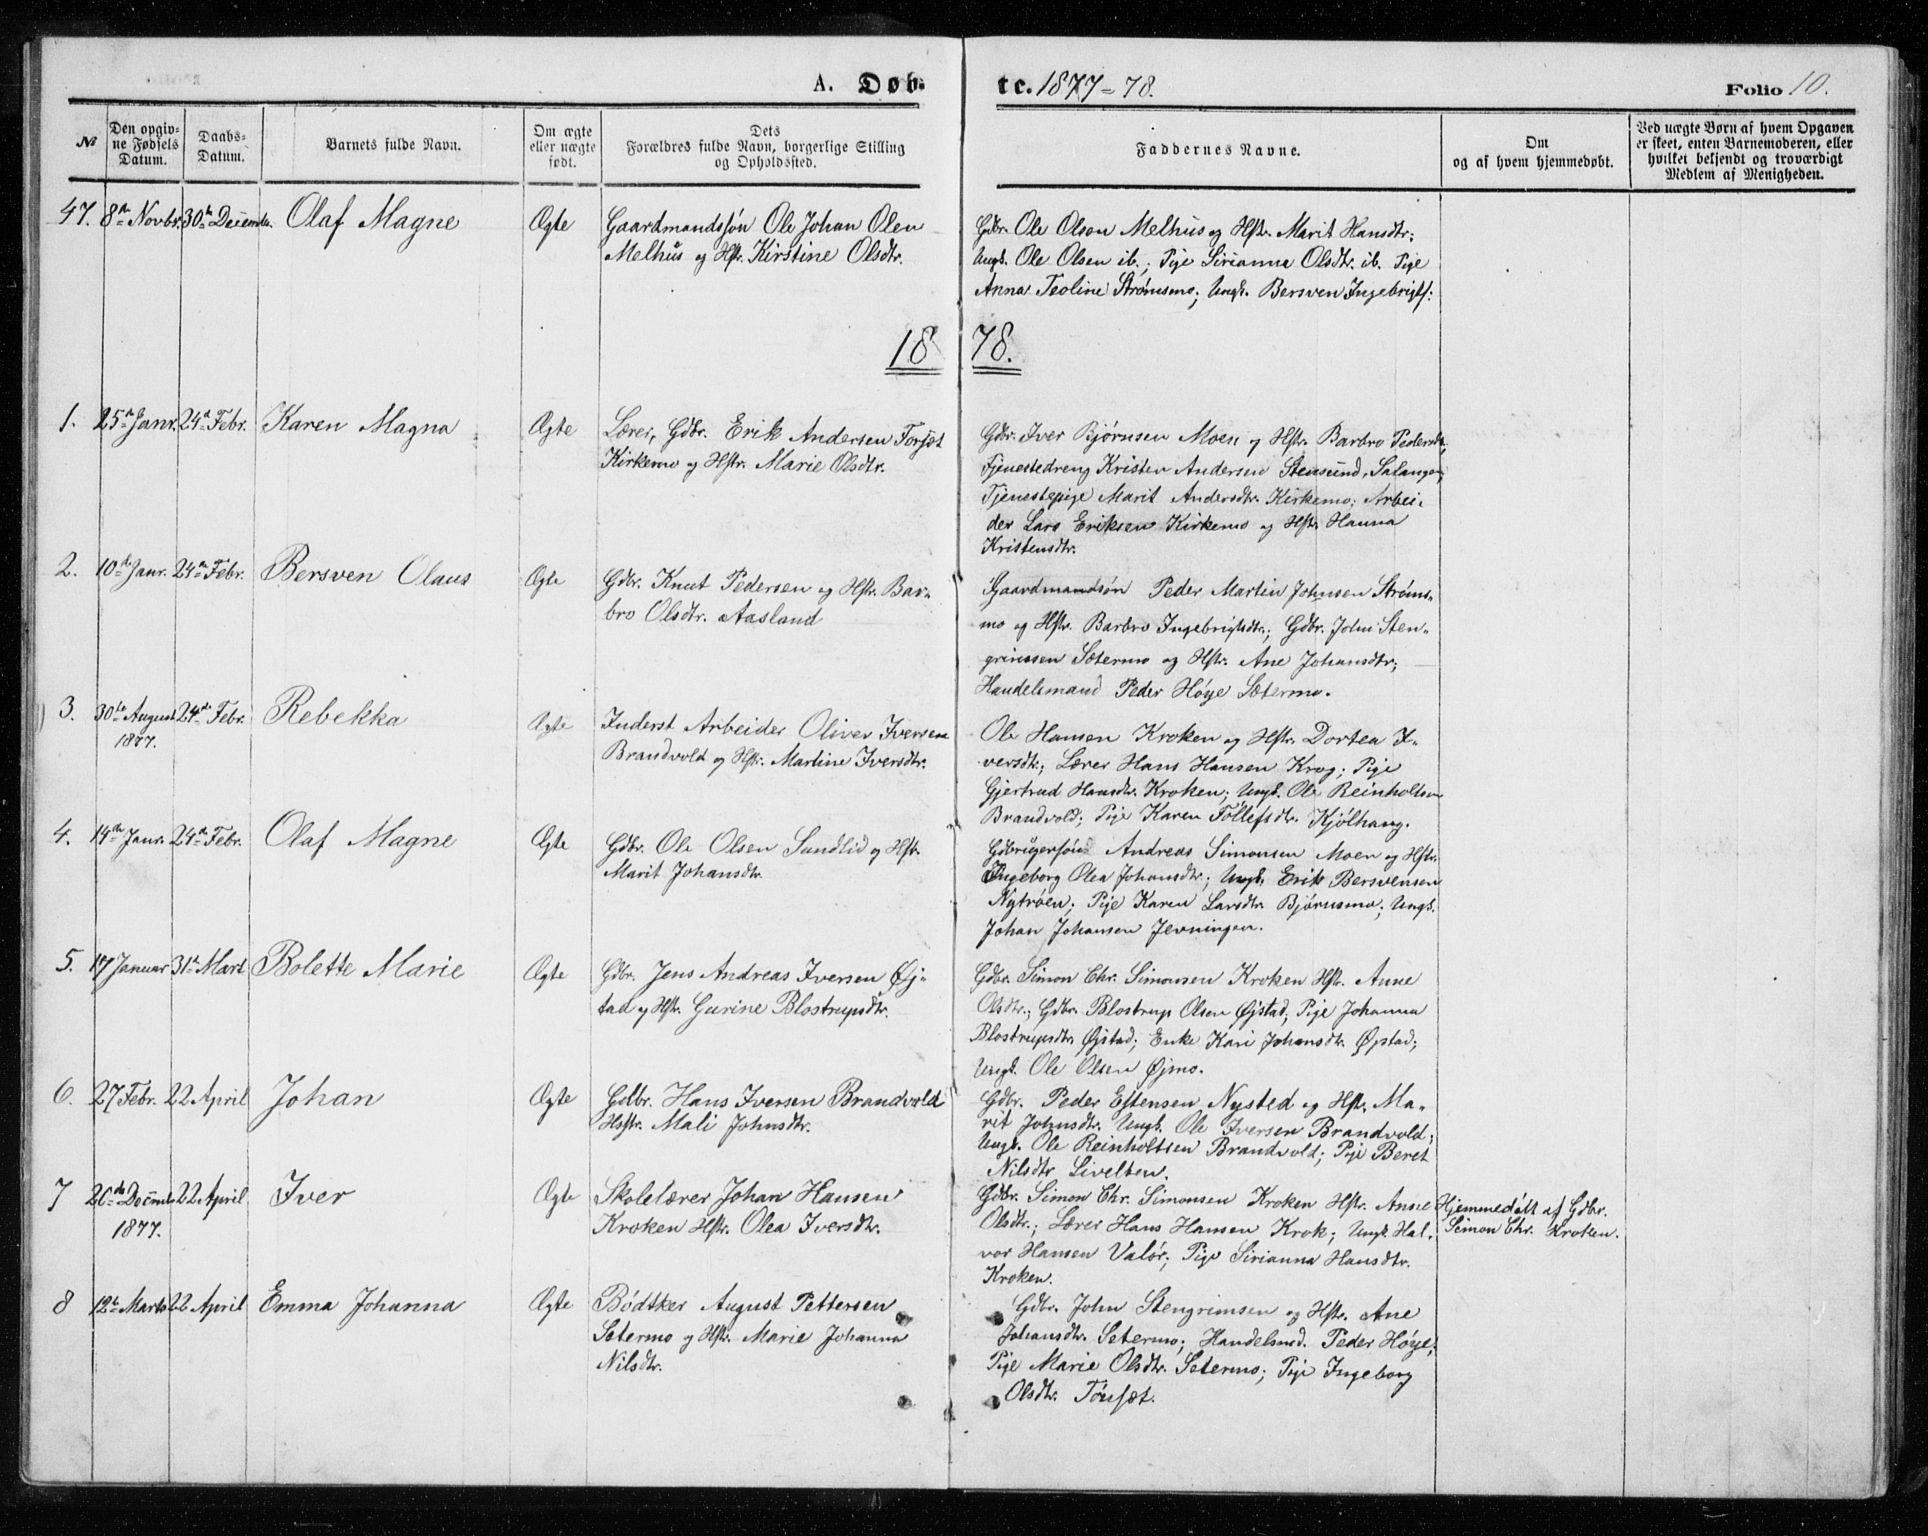 A. Døb- te. 1877-78. Folio 10.
№
Den opgiv-
ne Fødsels
Datum.
Daabs-
Datum.
Barnets fulde Navn.
Om ægte
eller uægte
født.
Dets
Forældres fulde Navn, borgerlige Stilling
og Opholdssted.
Faddernes Navne.
Om
og af hvem hjemmedøbt.
Ved uægte Børn af hvem Opgaven
er skeet, enten Barnemoderen, eller
hvilket bekjendt og troværdigt
Medlem af Menigheden.
47. 8de Novbr. 30te Decemb. Olaf Magne Ægte
Gaardmandssøn Ole Johan Olen
Melhus og Hstr. Kirstine Olsdtr.
Gdbr. Ole Olsen Melhus og Hstr. Marit Hansdtr;
Ungk. Ole Olsen ib.; Pige Sirianna Olsdtr. ib. Pige
Anna Teoline Strømsmo; Ungk. Bersven Ingebrigts:
1878.
1. 25de Janr. 24de Febr. Karen Magna Ægte
Lærer, Gdbr. Erik Andersen Forset
Kirkemo og Hstr. Marie Olsdtr.
Gdbr. Iver Bjørnsen Moen og Hstr. Barbro Pedersdtr,
Tjenestedreng Kristen Andersen Stensund, Salangen;
Tjenestepige Marit Andersdtr. Kirkemo; Arbei-
der Lars Eriksen Kirkemo og Hstr. Hanna
Kristensdtr.
2. 10de Janr. 24de Febr. Bersven Olaus Ægte
Gdbr. Knut Pedersen og Hstr. Bar-
bro Olsdtr. Aasland
Gaardmandsøn Peder Martin Johnsen Strøms-
mo og Hstr. Barbro Ingebrigtsdtr.; Gdbr. John Sten-
grimssen Sætermo og Hstr. Ane Johansdtr;
Handelsmand Peder Høye Sætermo.
3. 30te August 24de Febr. Rebekka Ægte
1877.
Inderst Arbeider Oliver Iversen
Brandvold og Hstr. Martine Iversdtr.
Ole Hansen Kroken og Hstr. Dortea I-
versdtr; Lærer Hans Hansen Krog; Pige
Gjertrud Hansdtr. Kroken; Ungk. Ole Reinholtsen
Brandvold; Pige Karen Tollefsdtr. Kjølhaug.
4. 14de Janr. 24de Febr. Olaf Magne Ægte
Gdbr. Ole Olsen Sundlid og Hstr.
Marit Johansdtr.
Gdbrugersøn Andreas Simonsen Moen og Hstr.
Ingeborg Olea Johansdtr; Ungk. Erik Bersvensen
Nytrøen; Pige Karen Larsdtr. Bjørnsmo; Ungk.
Johan Johansen Jevningen.
5. 17 Januar 31te Mart Bolette Marie Ægte
Gdbr. Jens Andreas Iversen Øj-
stad og Hstr. Gurine Blostrupsdtr.
Gdbr. Simon Chr. Simonsen Kroken Hstr. Anne
Olsdtr.; Gdbr. Blostrup Olsen Øjstad; Pige Johanna
Blostrupsdtr Øjstad; Enke Kari Johansdtr. Øjstad;
Ungk. Ole Olsen Øjmo.
6. 27 Febr. 22 April Johan Ægte
Gdbr. Hans Iversen Brandvold
Hstr. Mali Johnsdtr.
Gdbr. Peder Estensen Nysted og Hstr. Ma-
rit Johnsdtr. Ungk. Ole Iversen Brandvold;
Ungk. Ole Reinholtsen Brandvold; Pige Beret
Nilsdtr Livelten.
7 26de Decmb 22 April Iver Ægte
1877.
Skolelærer Johan Hansen
Kroken Hstr. Olea Iversdtr.
Gdbr. Simon Chr. Simonsen Kroken Hstr. Anne
Olsdtr.; Lærer Hans Hansen Krok; Ungk. Hal-
vor Hansen Valør; Pige Sirianna Hansdtr.
Kroken.
Hjemmedøbt af Gdbr.
Simon Chr. Kroken.
8 12te Marts 22 April Emma Johanna Ægte
Bødtker August Pettersen
Setermo og Hstr. Marie Johanna
Nilsdtr.
Gdbr. John Stengrimsen og Hstr. Ane
Johansdtr. Setermo; Handelsmd. Peder Høye;
Pige Marie Olsdtr. Setermo; Pige Ingeborg
Olsdtr. Tønset.